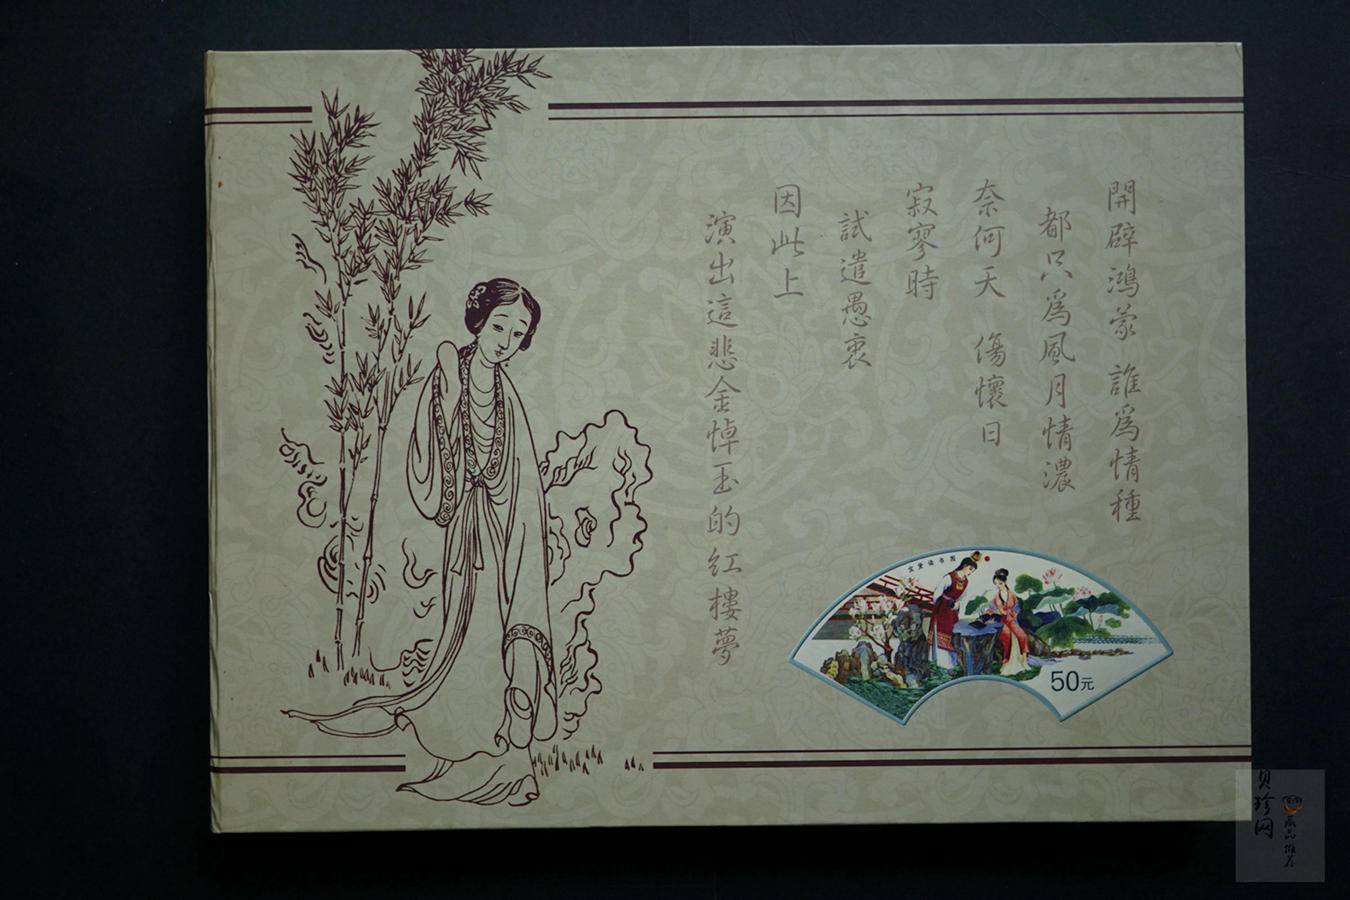 開辟鴻蒙 誰爲情種
都只爲風月情濃
奈何天 傷懷日
寂寥時
試遣愚衷
因此上
演出這悲金悼玉的紅樓夢
宝黛读书图
50元
贝珍网
藏品推荐